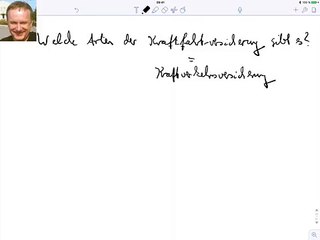 Welche Arten der Kraftfahrtversicherung gibt es?
=
Kraftverkehrsversicherung